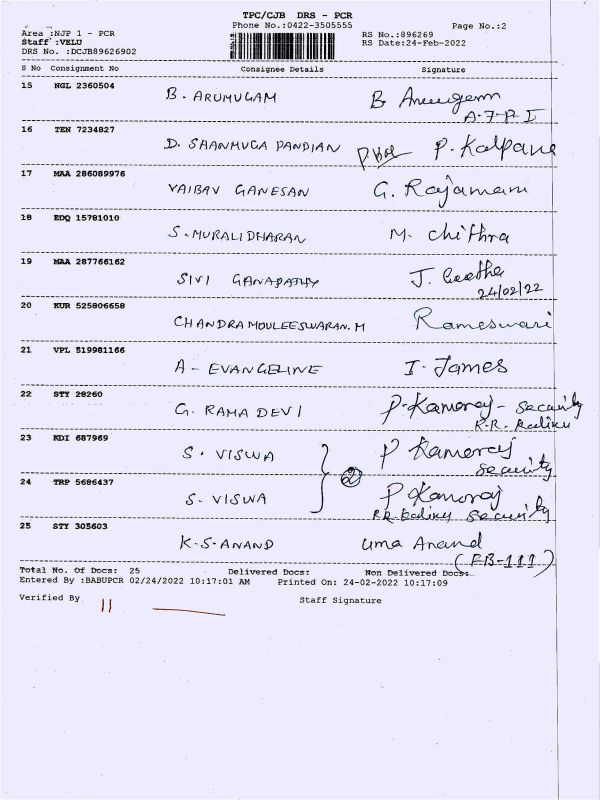 TPC/CJB DRS - PCR
Phone No.:0422-3505555 Page No.:2
Area :NJP 1 - PCR RS No.:896269
Staff :VELU RS Date:24-Feb-2022
DRS No. :DCJB89626902
S No Consignment No Consignee Details Signature
15 NGL 2360504 B. ARUMUGAM B Arumugam
A-7-P-I
16 TEN 7234827 D. SHANMUGA PANDIAN P. Kalpana
17 MAA 286089976 VAIBAV GANESAN G. Rajamani
18 EDQ 15781010 S. MURALIDHARAN M. Chithra
19 MAA 287766162 SIVI GANAPATHY J. Geetha
24/02/22
20 KUR 525806658 CHANDRAMOULEESWARAN. M Rameswari
21 VPL 519981166 A - EVANGELINE I. James
22 STY 28260 G. RAMA DEVI P. Kamoraj - Security
R.R.
23 KDI 687969 S. VISWA P Kamoraj
Security
24 TRP 5686437 S. VISWA 2 P Kamoraj
R.R. Security
25 STY 305603 K.S. ANAND Uma Anand
(FB-111)
Total No. Of Docs: 25 Delivered Docs: Non Delivered Docs:
Entered By :BABUPCR 02/24/2022 10:17:01 AM Printed On: 24-02-2022 10:17:09
Verified By Staff Signature